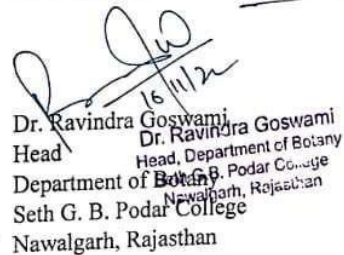 16/11/22
Dr. Ravindra Goswami
Head
Department of Botany
Seth G. B. Podar College
Nawalgarh, Rajasthan
Dr. Ravindra Goswami
Head, Department of Botany
Seth G.B. Podar College
Nawalgarh, Rajasthan